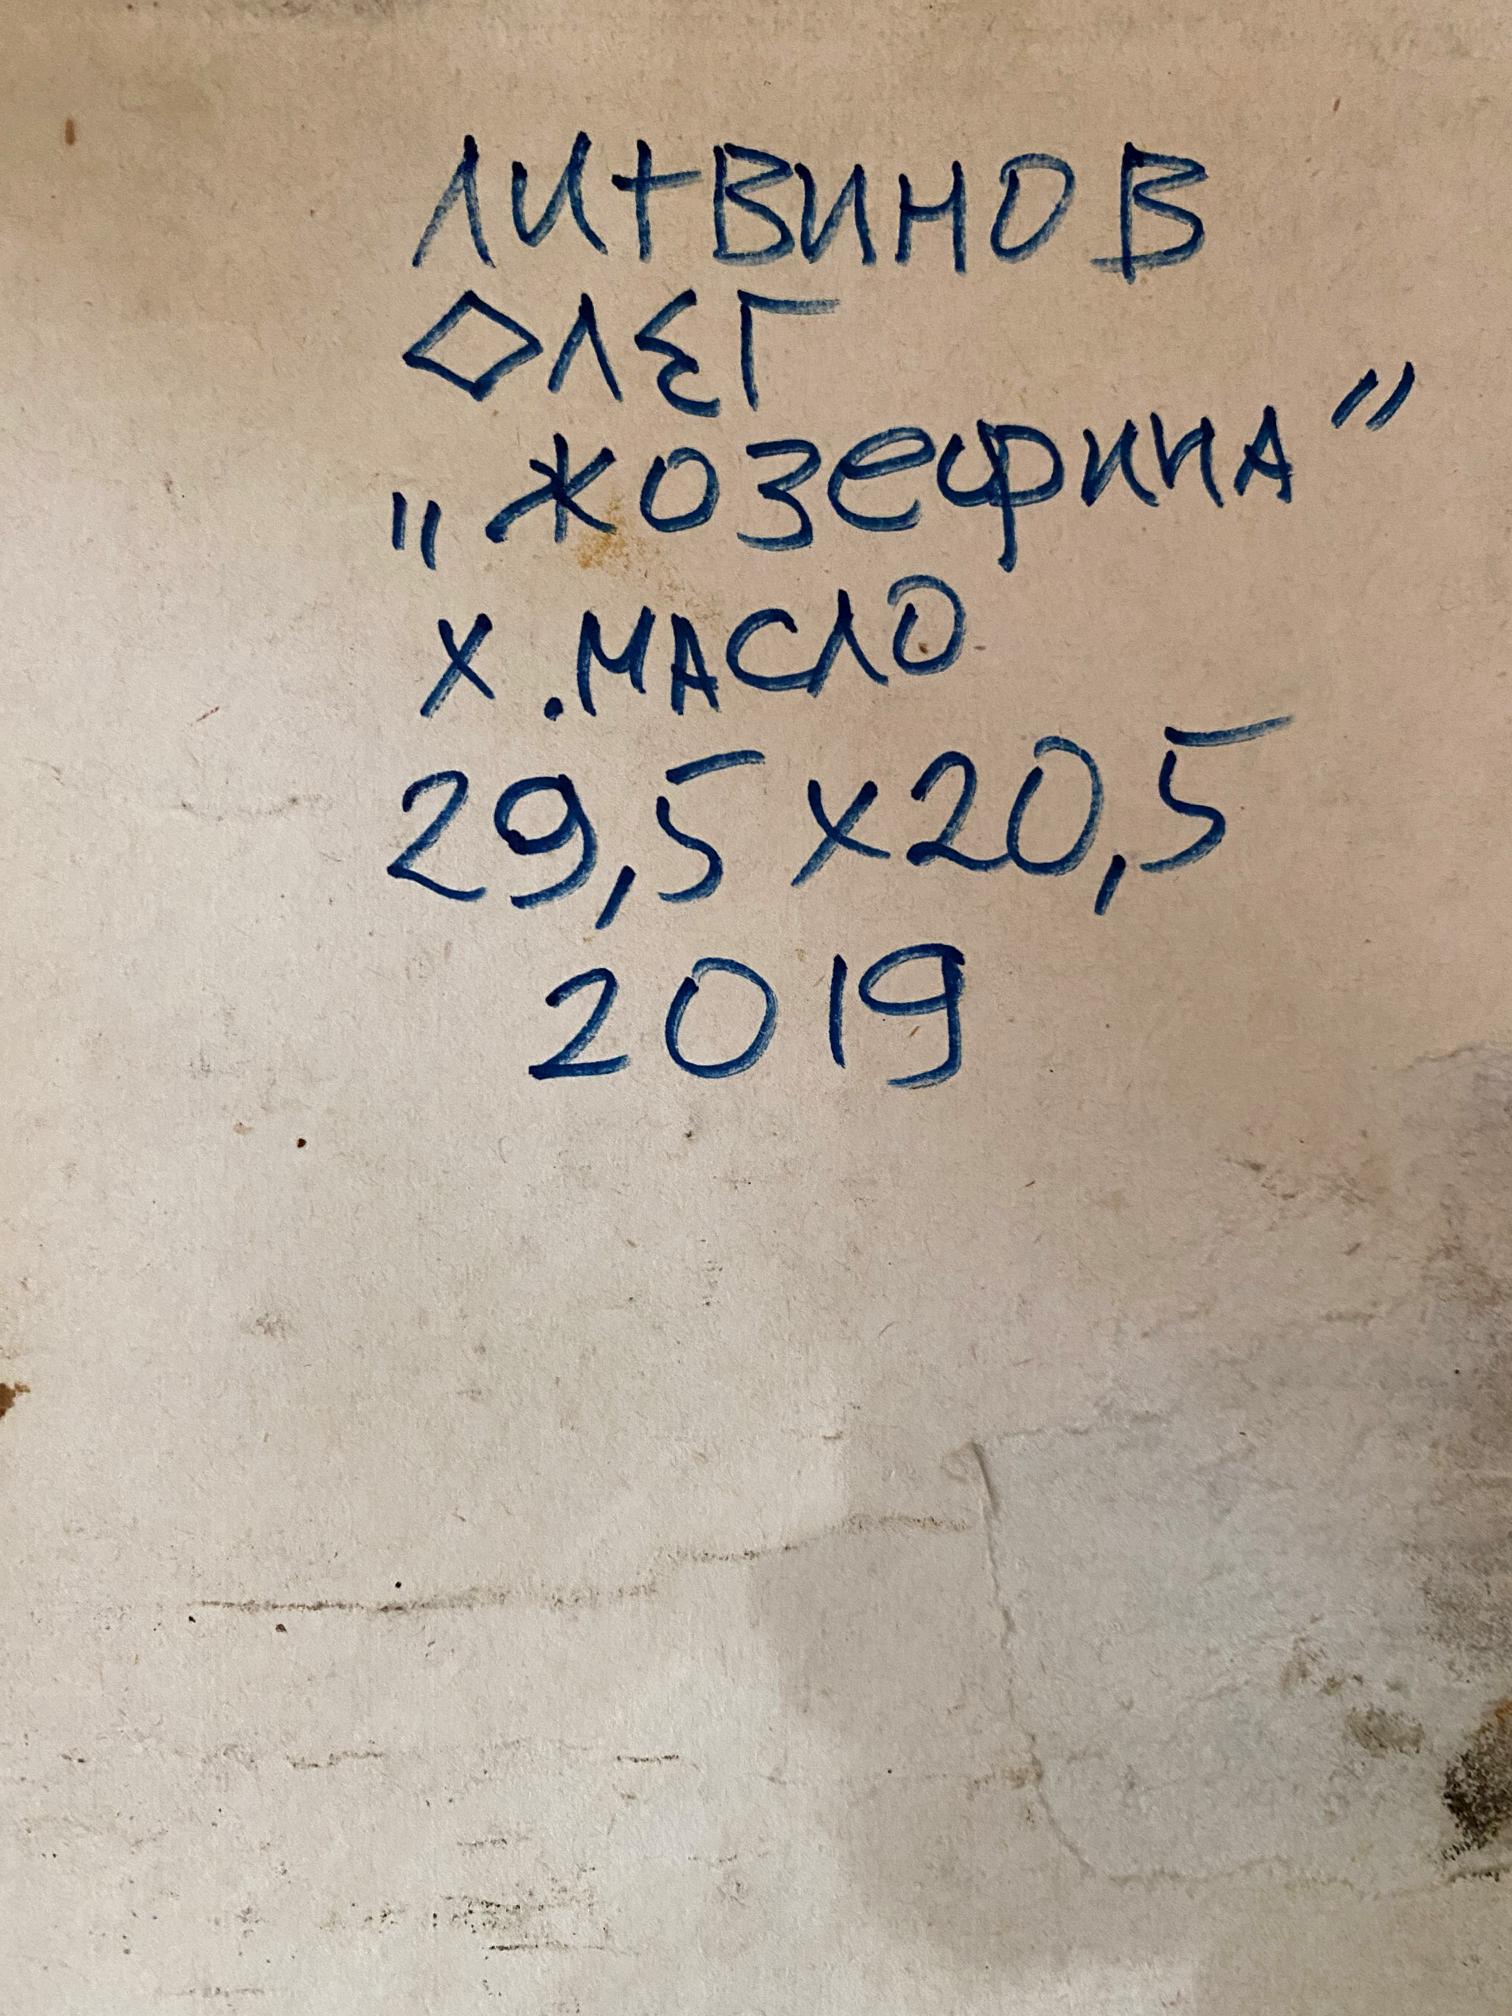 ЛИТВИНОВ
ОЛЕГ
„ЖОЗЕФИНА”
Х.МАСЛО
29,5х20,5
2019